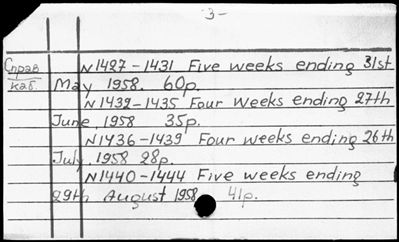 -3-
Справ. N1427-1431 Five weeks ending 31st
каб. May 1958. 60p.
N1432-1435 Four weeks ending 27th
June, 1958 35p.
N1436-1439 Four weeks ending 26th
July, 1958 28p.
N1440-1444 Five weeks ending
29th August 1958 41p.